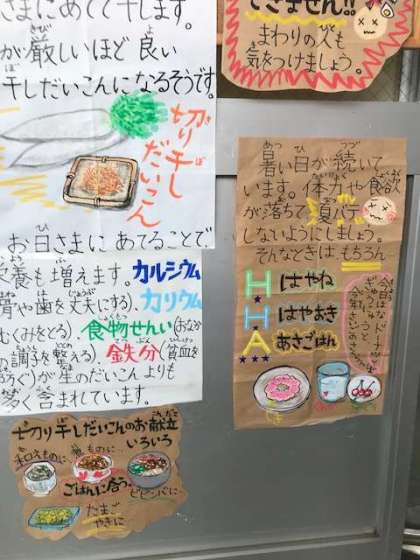 さまにあてて干します。
が厳しいほど良い
干しだいこんになるそうです。
切り干し
だいこん
お日さまにあてることで
栄養も増えます。カルシウム
骨や歯を丈夫にする)、カリウム
むくみをとる)、食物せんい(おなか
の調子を整える)、鉄分(貧血を
ふせぐ)が生のだいこんよりも
多く含まれています。
切り干しだいこんのお献立
いろいろ
和えものに
煮ものに
ごはんに合う。
ビビンバに
たまご
やきに
できません!!
まわりの人も
気をつけましょう。
暑い日が続いて
います。体力や食欲
が落ちて夏バテ
しないようにしましょう。
そんなときは もちろん
H はやね
H はやおき
A あさごはん